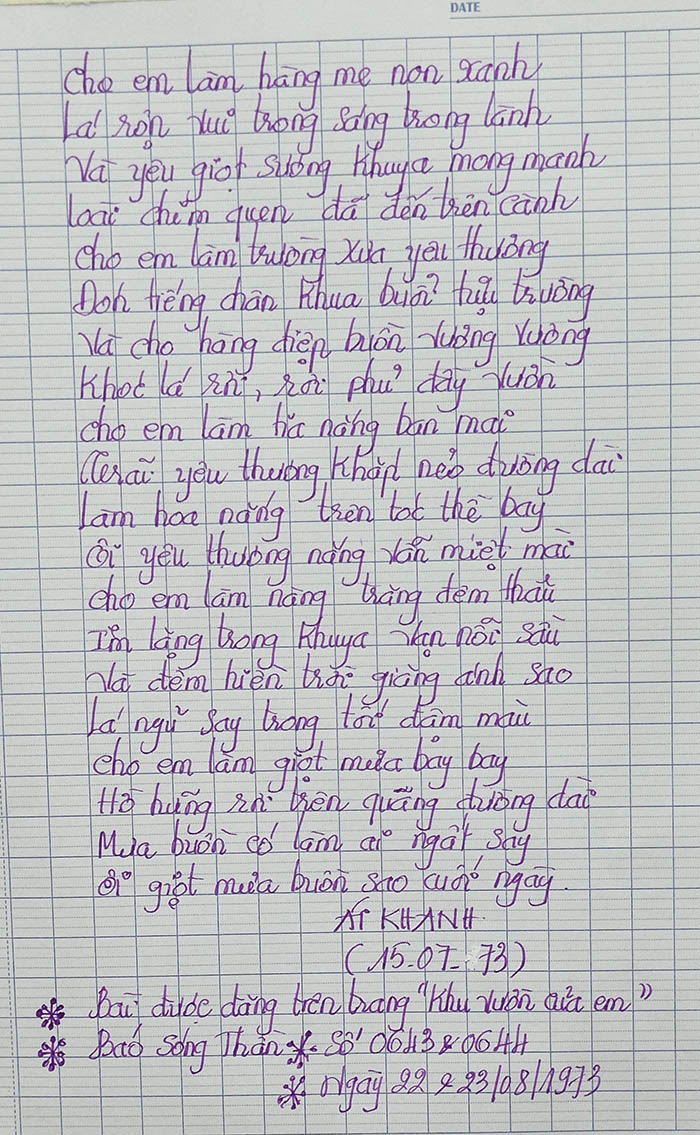 DATE
Cho em làm hàng me non xanh
Lá rộn vui trong sáng trong lành
Và yêu giọt sương khuya mong manh
Loài chim quen đã đến trên cành
Cho em làm trường xưa yêu thương
Đón tiếng chân khua buổi tựu trường
Và cho hàng điệp buồn vương vương
Khóc lá rơi, rơi phủ đầy vườn
Cho em làm tia nắng ban mai
yêu thương khắp nẻo đường dài
Làm hoa nắng trên tóc thề bay
Ôi yêu thương nắng vẫn miệt mài
Cho em làm nàng trăng đêm thâu
Im lặng trong khuya vạn nỗi sầu
Và đêm hiền trời giăng ánh sao
Lá ngủ say trong tối đậm màu
Cho em làm giọt mưa bay bay
Hờ hững rơi trên quãng đường dài
Mưa buồn có làm ai ngất say
Ôi giọt mưa buồn sao cuối ngày.
ÁI KHANH
(15-07-73)
* Bài được đăng trên trang "Khu vườn của em"
* Báo Sóng Thần * Số 0643 & 0644
* Ngày 22 & 23/08/1973